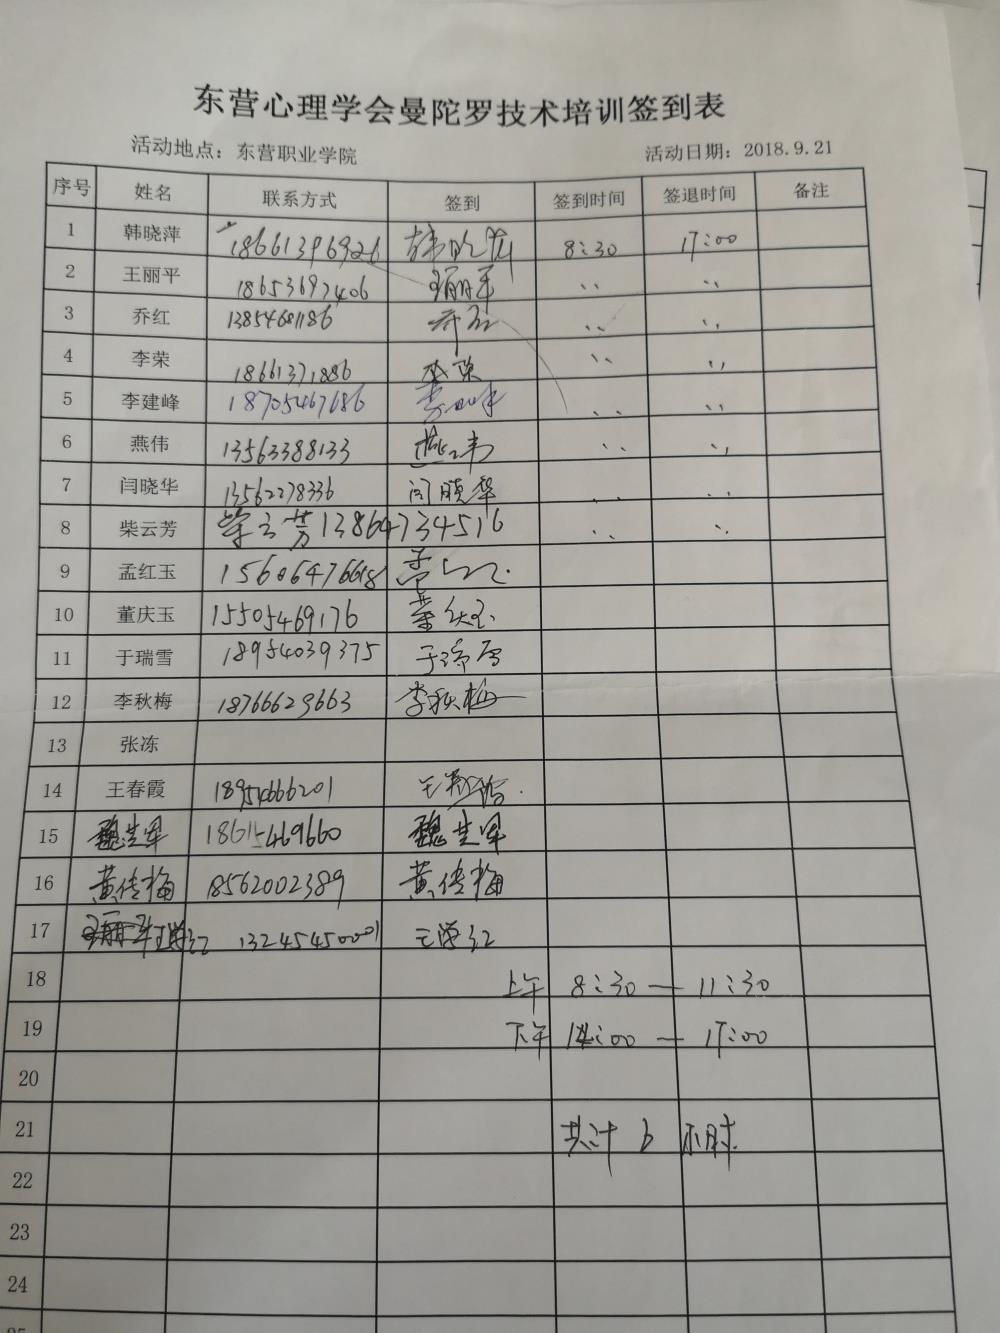 东营心理学会曼陀罗技术培训签到表
活动地点：东营职业学院 活动日期：2018.9.21
序号 姓名 联系方式 签到 签到时间 签退时间 备注
1 韩晓萍 18661396926 韩晓萍 8:30 17:00
2 王丽平 18653697406 王丽平 、、 、、
3 乔红 13854681186 乔红 、、 、、
4 李荣 18661371886 李荣 、、 、、
5 李建峰 18705467686 、、 、、
6 燕伟 13563388133 燕伟 、、 、、
7 闫晓华 13562278336 闫晓华 、、 、、
8 柴云芳 柴云芳 13864734516 、、 、、
9 孟红玉 15606476618
10 董庆玉 15505469176 董庆玉
11 于瑞雪 18954039375 于瑞雪
12 李秋梅 18766629663 李秋梅
13 张冻
14 王春霞 18954666201 王春霞
15 18615469660
16 黄传梅 18562002389 黄传梅
17 王学红 13245450001 王学红
18 上午 8:30 — 11:30
19 下午 14:00 — 17:00
20
21 共计 6 小时
22
23
24